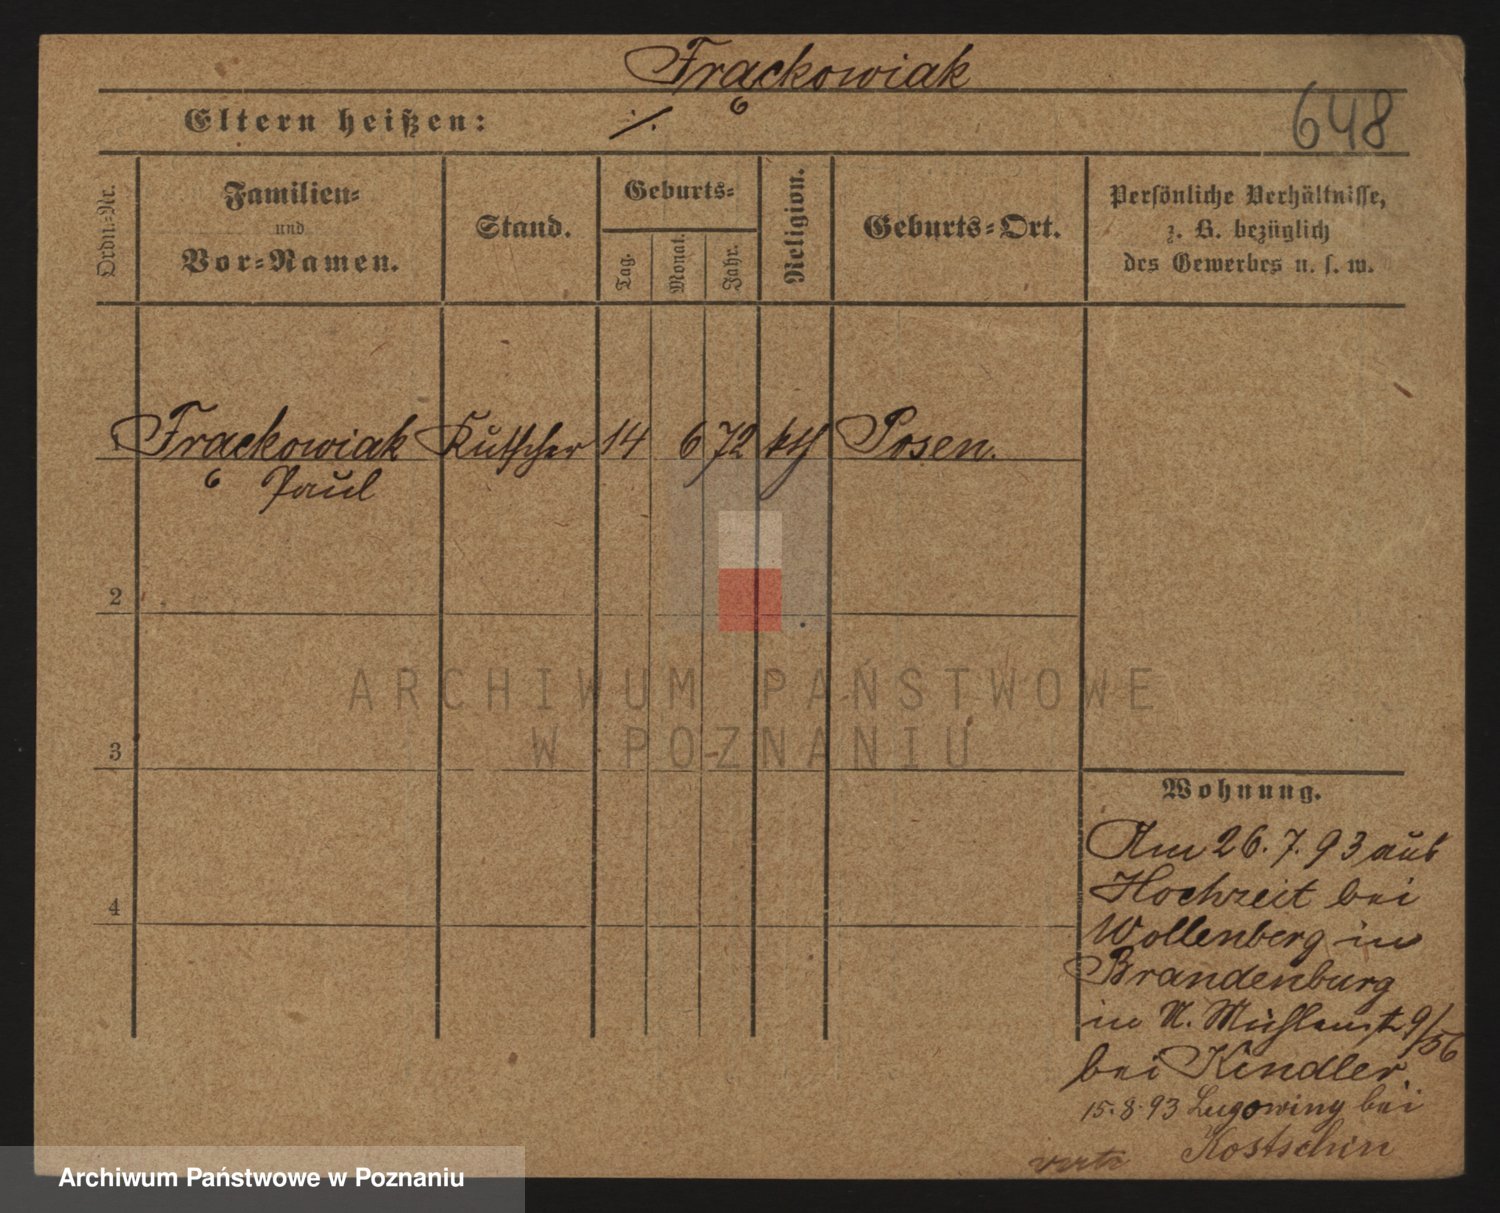 Frąckowiak
648
Eltern heißen: ./.
Ordn.-Nr.
Familien-
und
Vor-Namen.
Stand.
Geburts-
Tag.
Monat.
Jahr.
Religion.
Geburts-Ort.
Persönliche Verhältnisse,
z. B. bezüglich
des Gewerbes u. s. w.
1 Frąckowiak Kutscher 14 6 72 kth Posen.
Paul
2
ARCHIWUM PAŃSTWOWE
W POZNANIU
3
4
Wohnung.
Am 26. 7. 93 aus
Hochzeit bei
Wollenberg in
Brandenburg
in N. Mühlenstr 9/56
bei Kindler.
15. 8. 93 bei
Kostschin
verte
Archiwum Państwowe w Poznaniu